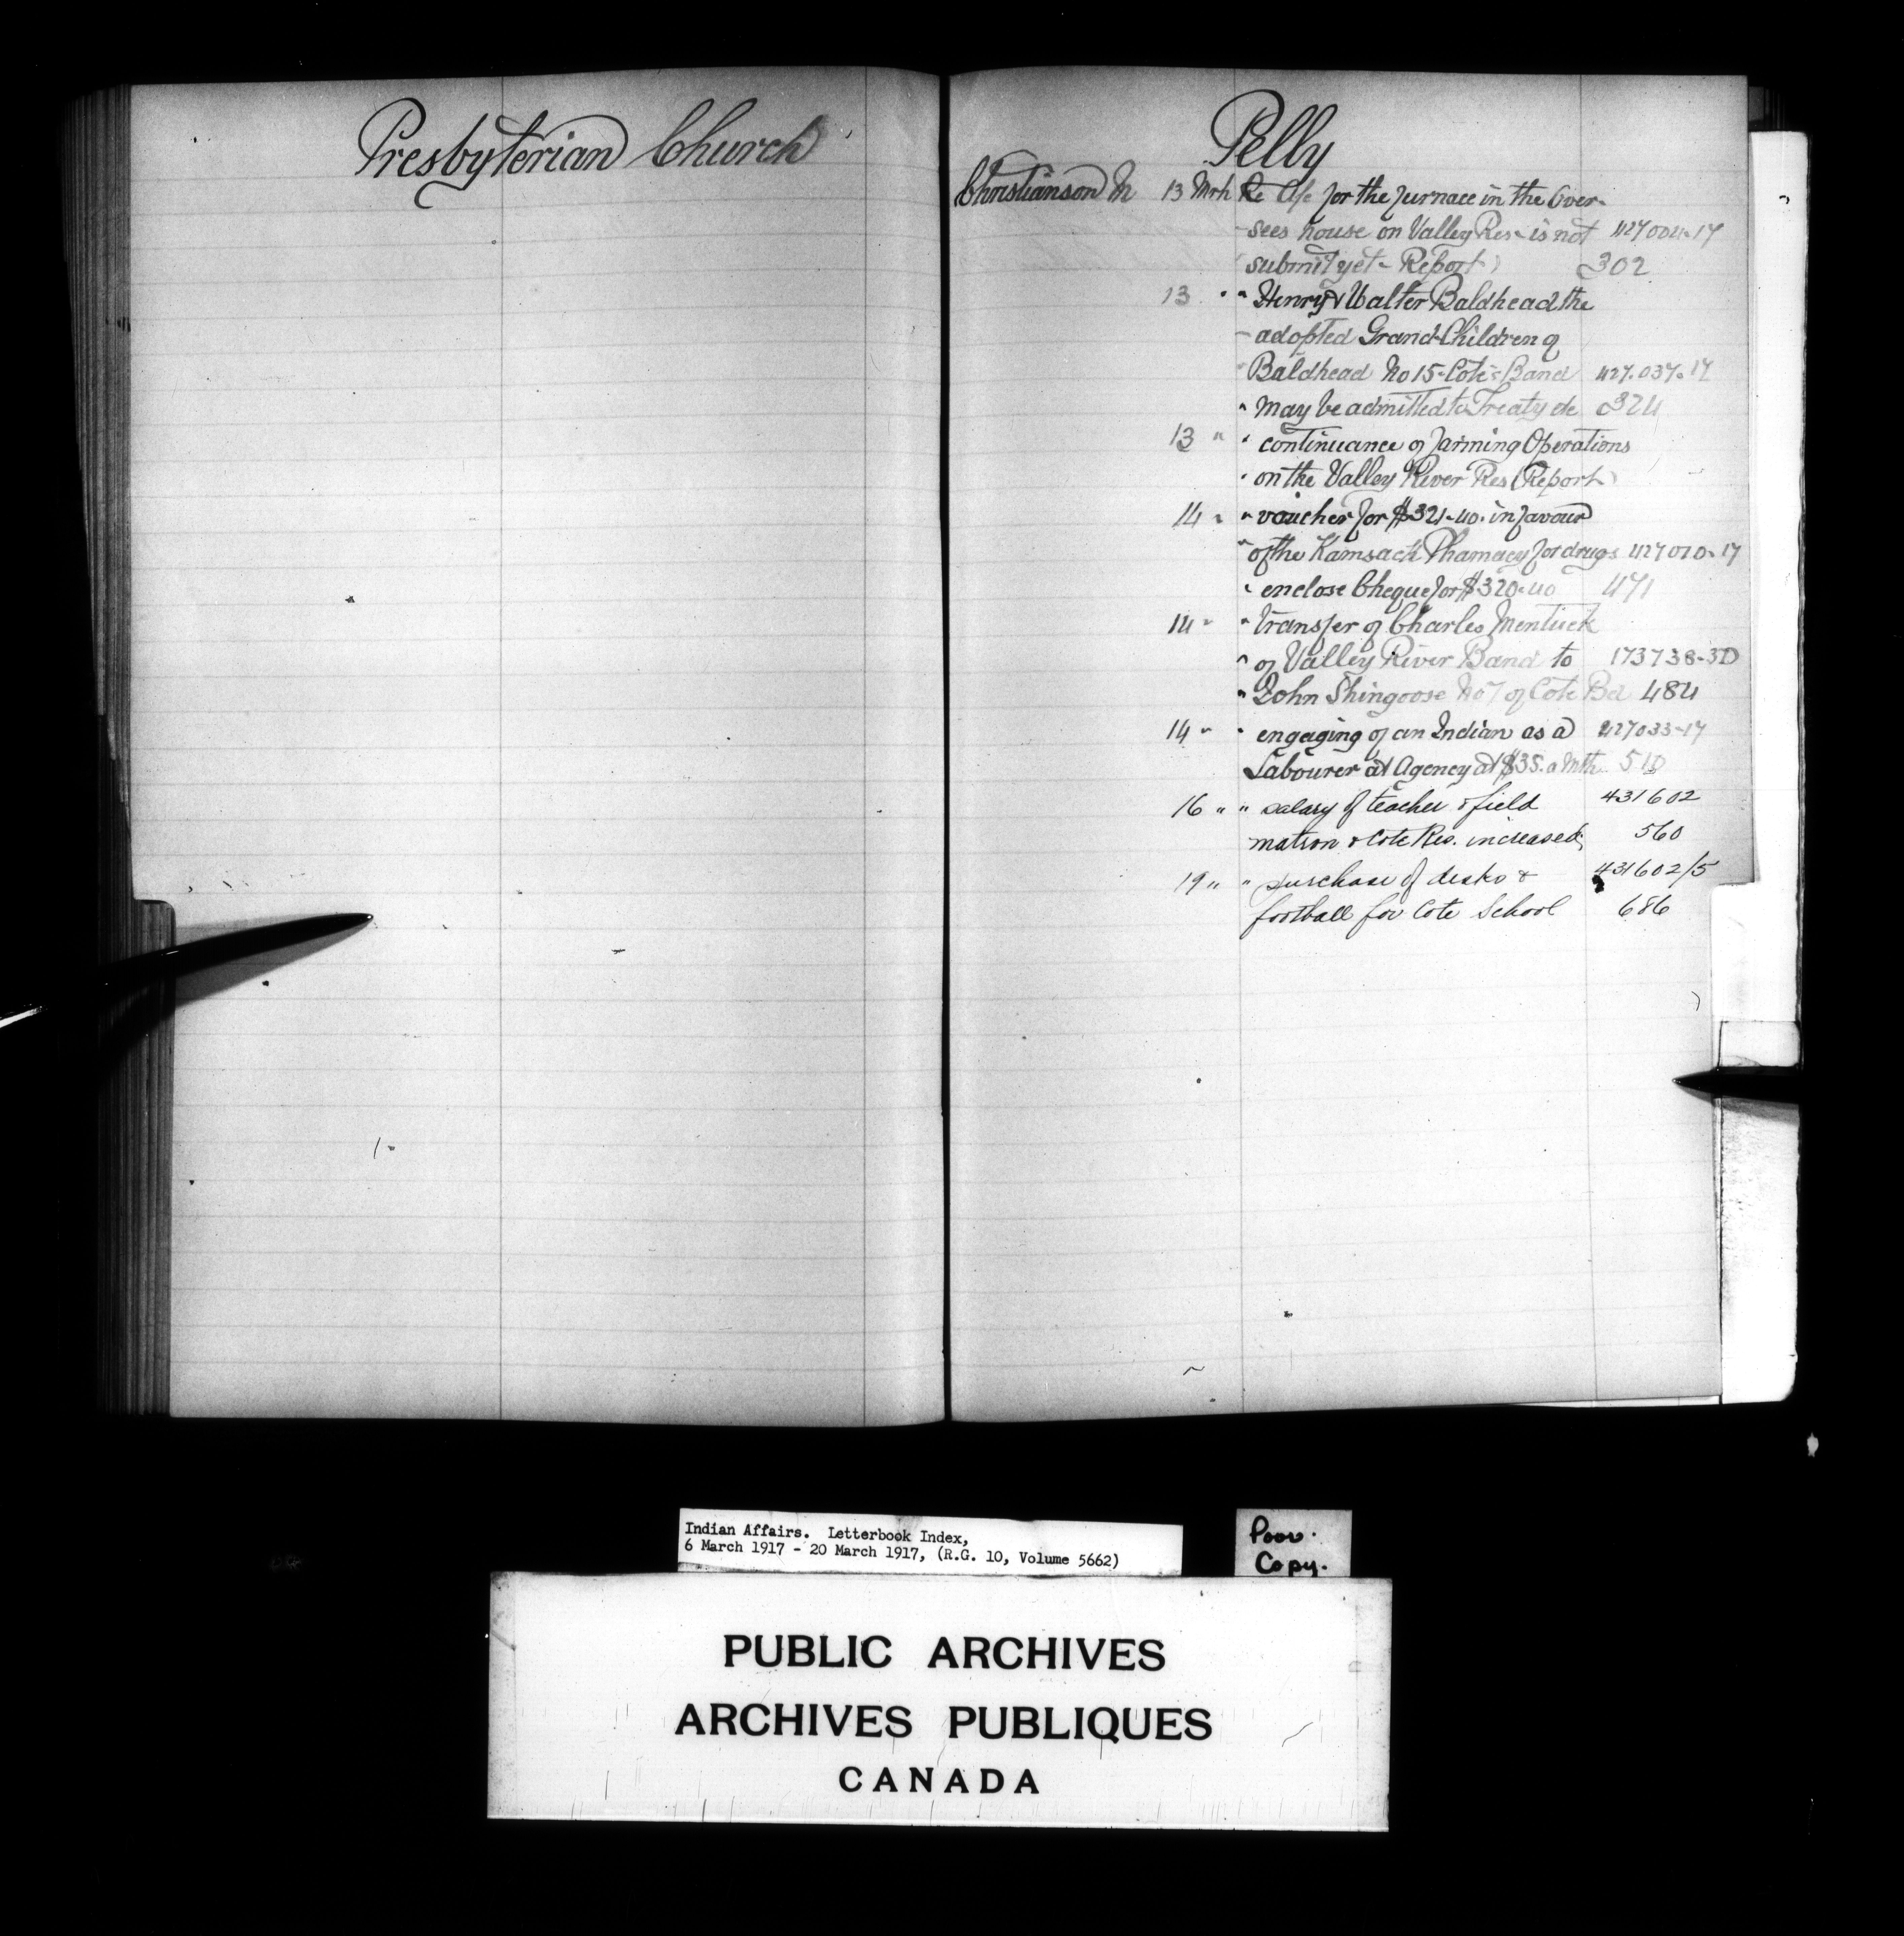 Presbyterian Church
Pelly
Christianson M 13 Mrh Re A/c for the furnace in the Over-
sees house on Valley Res - is not 427004-17
submit yet - Report) 302
13 " " Henry & Walter Baldhead the
adopted Grand Children of
Baldhead No 15 - Cote's Band 427.037-17
" may be admitted to Treaty etc 324
13 " " continuance of farming Operations
" on the Valley River Res (Report)
14 " " voucher for $321-40. in favour
" of the Kamsack Phamacy for drugs 427010-17
" enclose Cheque for $320-40 471
14 " " transfer of Charles Mentuck
" of Valley River Band to 173738-3D
" John Shingoose No 7 of Cote Bd 484
14 " " engaging of an Indian as a 427033-17
Labourer at Agency at $35. a Mth 510
16 " " salary of teacher & field 431602
matron & Cote Res. increased 560
19 " " purchase of desks & 431602/5
football for Cote School 686
Indian Affairs. Letterbook Index,
6 March 1917 - 20 March 1917, (R.G. 10, Volume 5662)
Poor
Copy.
PUBLIC ARCHIVES
ARCHIVES PUBLIQUES
CANADA